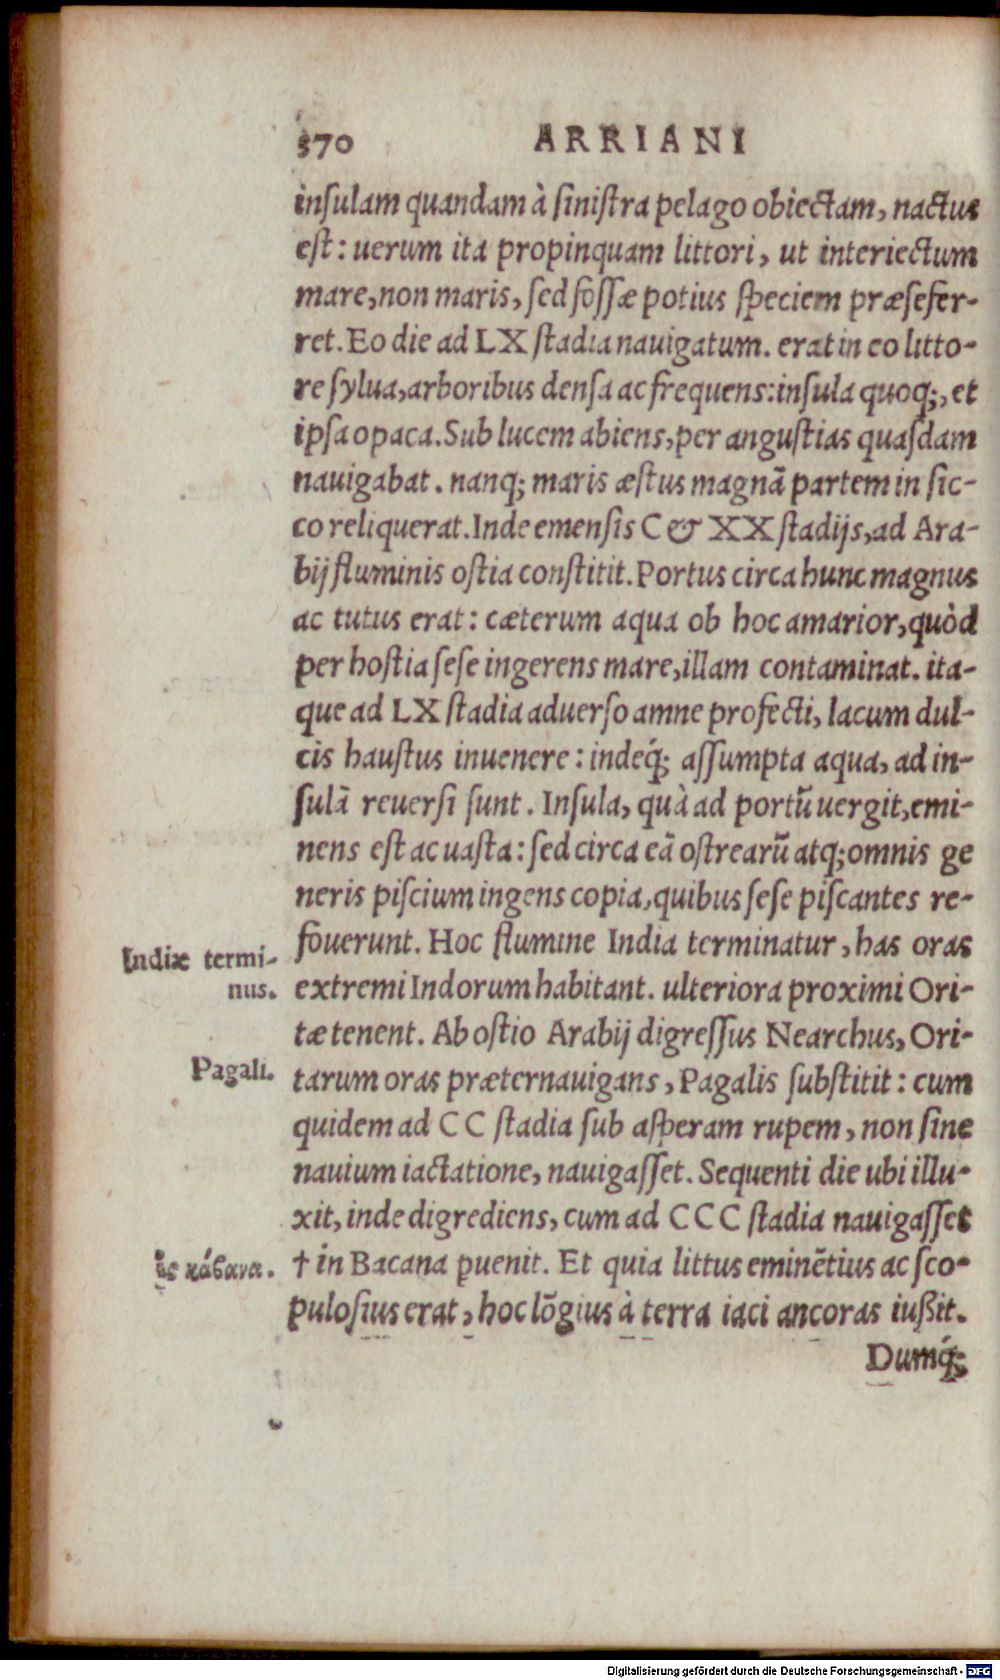 370 ARRIANI
insulam quandam à sinistra pelago obiectam, nactus
est: uerum ita propinquam littori, ut interiectum
mare, non maris, sed fossæ potius speciem præsefer-
ret. Eo die ad LX stadia nauigatum. erat in eo litto-
re sylua, arboribus densa ac frequens: insula quoq;, et
ipsa opaca. Sub lucem abiens, per angustias quasdam
nauigabat. nanq; maris æstus magnã partem in sic-
co reliquerat. Inde emensis C & XX stadijs, ad Ara-
bij fluminis ostia constitit. Portus circa hunc magnus
ac tutus erat: cæterum aqua ob hoc amarior, quòd
per hostia sese ingerens mare, illam contaminat. ita-
que ad LX stadia aduerso amne profecti, lacum dul-
cis haustus inuenere: indeq́; assumpta aqua, ad in-
sulã reuersi sunt. Insula, quà ad portũ uergit, emi-
nens est ac uasta: sed circa eã ostrearũ atq; omnis ge
neris piscium ingens copia, quibus sese piscantes re-
fouerunt. Hoc flumine India terminatur, has oras
extremi Indorum habitant. ulteriora proximi Ori-
tæ tenent. Ab ostio Arabij digressus Nearchus, Ori-
tarum oras præternauigans, Pagalis substitit: cum
quidem ad CC stadia sub asperam rupem, non sine
nauium iactatione, nauigasset. Sequenti die ubi illu-
xit, inde digrediens, cum ad CCC stadia nauigasset
† in Bacana puenit. Et quia littus eminẽtius ac sco-
pulosius erat, hoc lõgius à terra iaci ancoras iußit.
Dumq́;
Indiæ termi-
nus.
Pagali.
ἐς κάβανα.
Digitalisierung gefördert durch die Deutsche Forschungsgemeinschaft - DFG